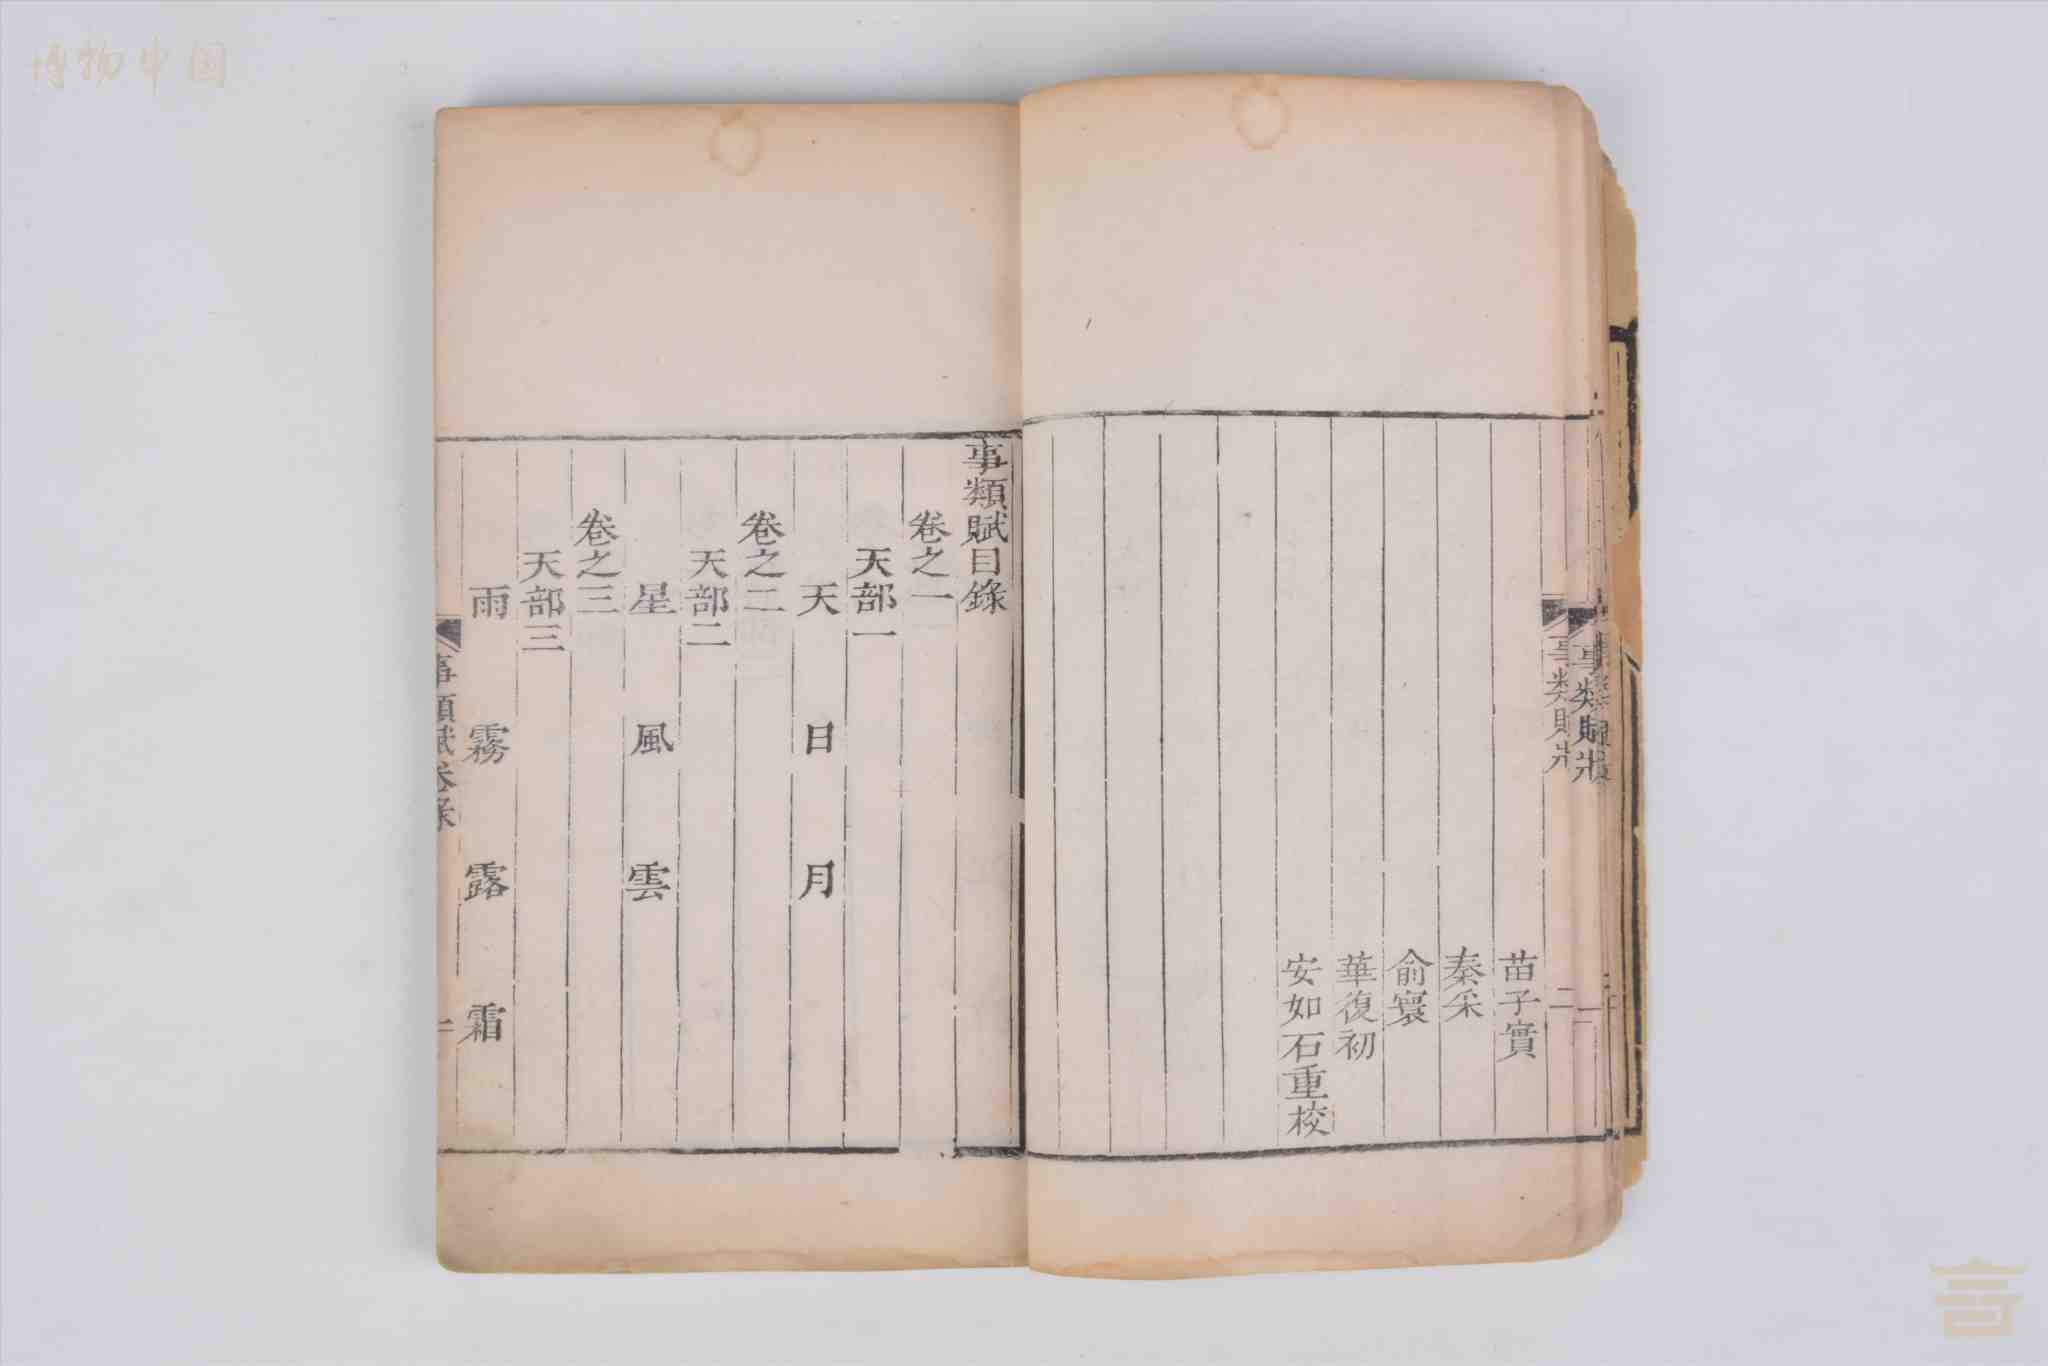 博物中国
苗子實
秦采
俞寰
華復初
安如石重校
事類賦目錄
卷之一
天部一
天 日 月
卷之二
天部二
星 風 雲
卷之三
天部三
雨 霧 露 霜